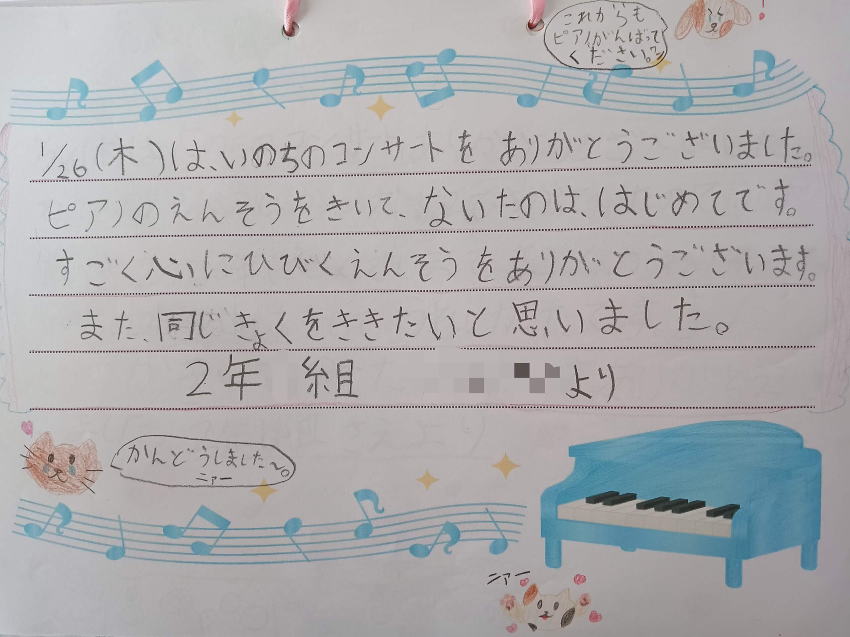 これからも
ピアノがんばって
ください。
1/26(木)は、いのちのコンサートを ありがとうございました。
ピアノのえんそうをきいて、ないたのは、はじめてです。
すごく心にひびくえんそうをありがとうございます。
また、同じきょくをききたいと思いました。
2年 組 より
かんどうしました〜。
ニャー
ニャー